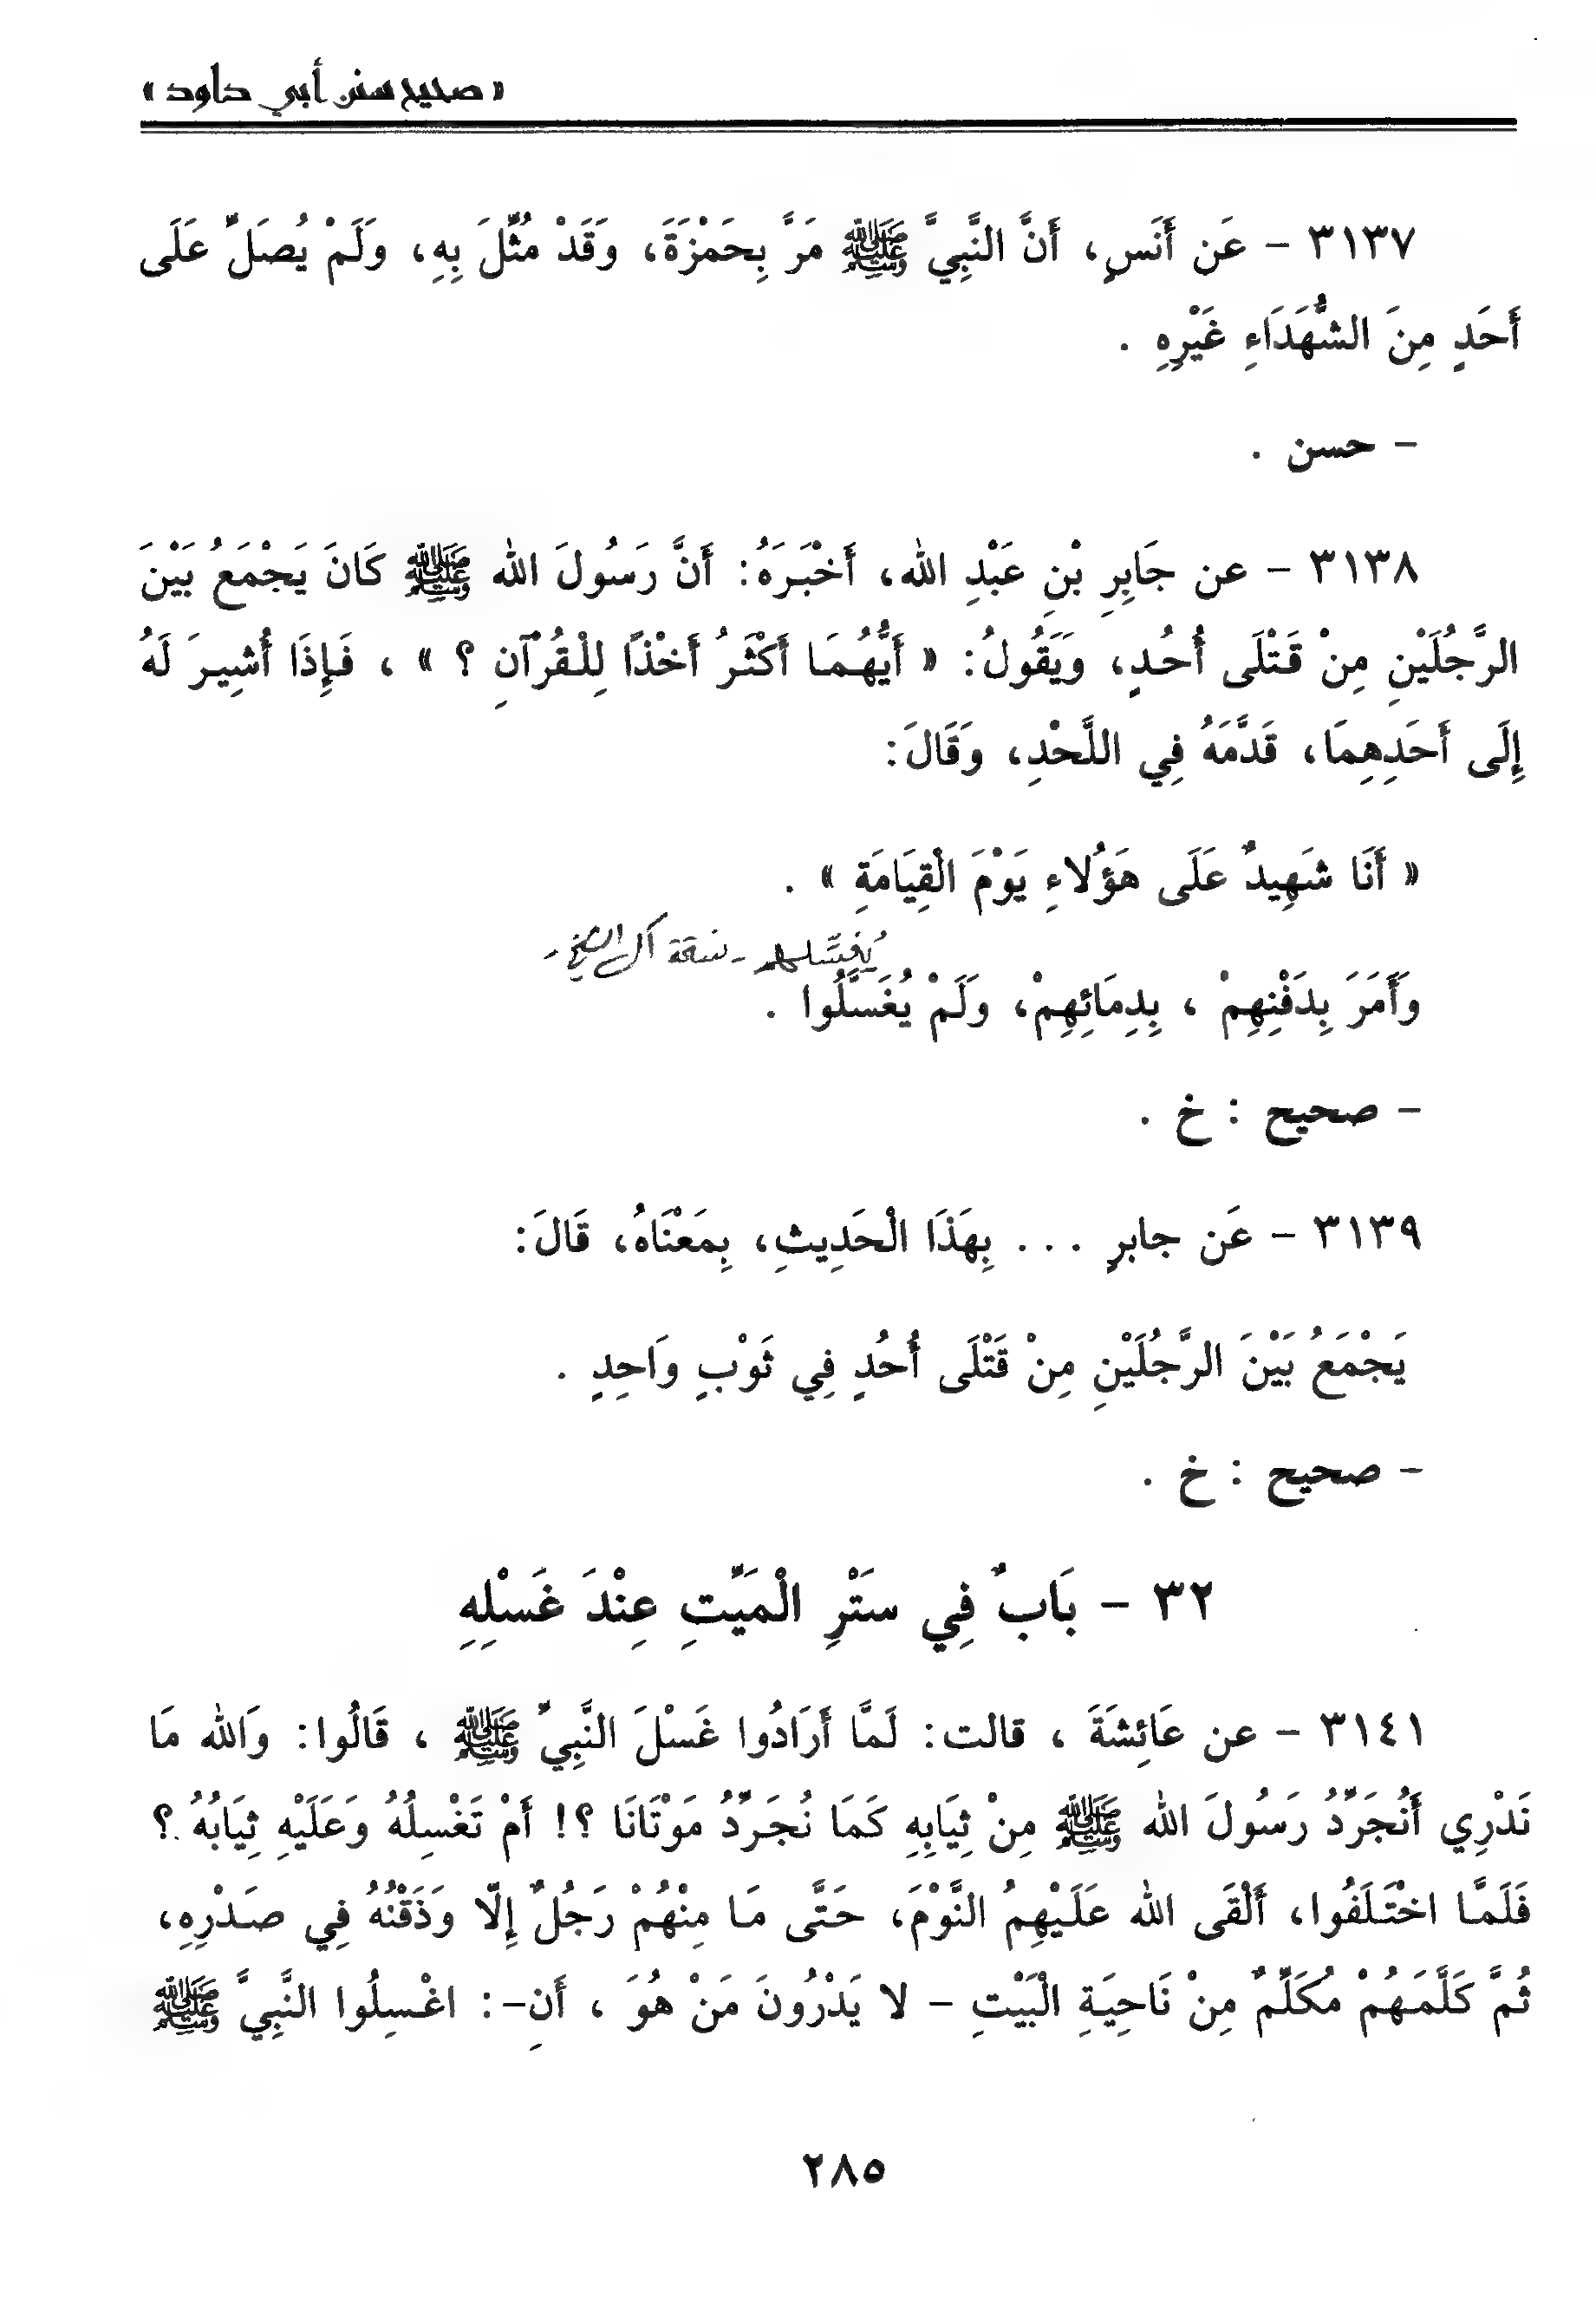 « صحيح سنن أبي داود »
٣١٣٧ - عَن أَنَسٍ، أَنَّ النَّبِيَّ ﷺ مَرَّ بِحَمْزَةَ، وَقَدْ مُثِّلَ بِهِ، وَلَمْ يُصَلِّ عَلَى
أَحَدٍ مِنَ الشُّهَدَاءِ غَيْرِهِ .
- حسن .
٣١٣٨ - عن جَابِرِ بْنِ عَبْدِ الله، أَخْبَرَهُ: أَنَّ رَسُولَ الله ﷺ كَانَ يَجْمَعُ بَيْنَ
الرَّجُلَيْنِ مِنْ قَتْلَى أُحُدٍ، وَيَقُولُ: « أَيُّهُمَا أَكْثَرُ أَخْذًا لِلْقُرْآنِ ؟ » ، فَإِذَا أُشِيرَ لَهُ
إِلَى أَحَدِهِمَا، قَدَّمَهُ فِي اللَّحْدِ، وَقَالَ:
« أَنَا شَهِيدٌ عَلَى هَؤُلاءِ يَوْمَ الْقِيَامَةِ » .
يُغسَّلهم - نسخة آل الشيخ -
وَأَمَرَ بِدَفْنِهِمْ ، بِدِمَائِهِمْ، وَلَمْ يُغَسَّلُوا .
- صحيح : خ .
٣١٣٩ - عَن جابرٍ . . . بِهَذَا الْحَدِيثِ، بِمَعْنَاهُ، قَالَ:
يَجْمَعُ بَيْنَ الرَّجُلَيْنِ مِنْ قَتْلَى أُحُدٍ فِي ثَوْبٍ وَاحِدٍ .
- صحيح : خ .
٣٢ - بَابٌ فِي سَتْرِ الْمَيِّتِ عِنْدَ غَسْلِهِ
٣١٤١ - عن عَائِشَةَ ، قالت: لَمَّا أَرَادُوا غَسْلَ النَّبِيِّ ﷺ ، قَالُوا: وَالله مَا
نَدْرِي أَنُجَرِّدُ رَسُولَ الله ﷺ مِنْ ثِيَابِهِ كَمَا نُجَرِّدُ مَوْتَانَا ؟! أَمْ نَغْسِلُهُ وَعَلَيْهِ ثِيَابُهُ ؟
فَلَمَّا اخْتَلَفُوا، أَلْقَى الله عَلَيْهِمُ النَّوْمَ، حَتَّى مَا مِنْهُمْ رَجُلٌ إِلّا وَذَقْنُهُ فِي صَدْرِهِ،
ثُمَّ كَلَّمَهُمْ مُكَلِّمٌ مِنْ نَاحِيَةِ الْبَيْتِ - لا يَدْرُونَ مَنْ هُوَ ، أَنِ-: اغْسِلُوا النَّبِيَّ ﷺ
٢٨٥